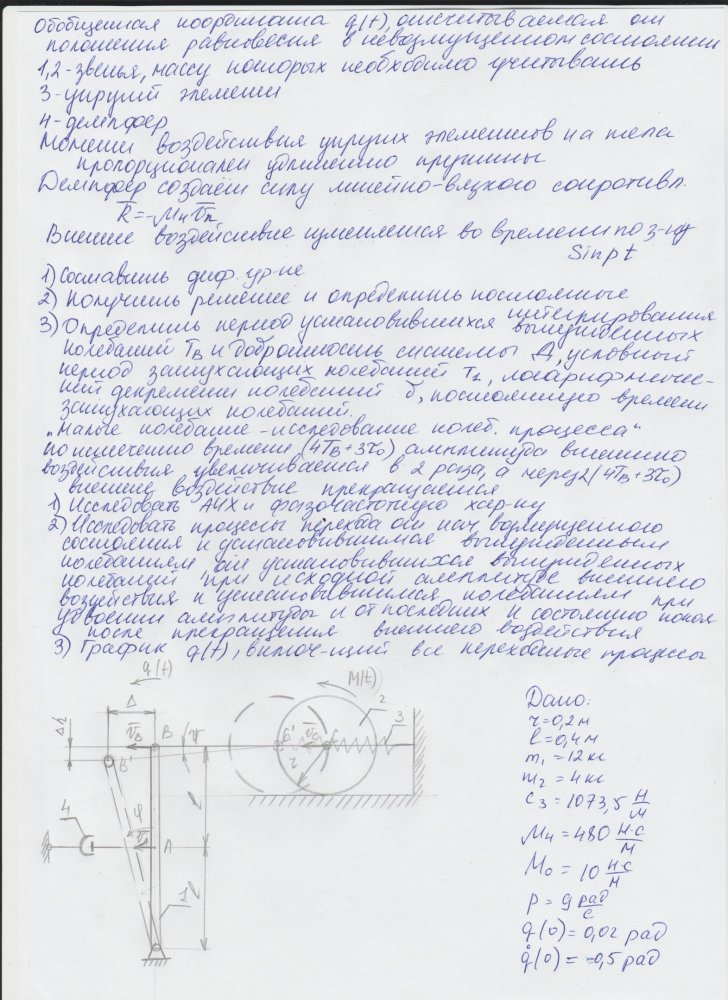 Обобщенная координата q(t), отсчитываемая от
положения равновесия в невозмущенном состоянии
1,2-звенья, массу которых необходимо учитывать
3-упругий элемент
4-демпфер
Момент воздействия упругих элементов на тела
пропорционален удлинению пружины
Демпфер создает силу линейно-вязкого сопротивл.
R̅=-μ₄v̅ₙ
Внешнее воздействие изменяется во времени по з-ну
Sinpt
1) Составить диф. ур-ие
2) Получить решение и определить постоянные
интегрирования
3) Определить период установившихся вынужденных
колебаний Tв и добротность системы Д, условный
период затухающих колебаний T₁, логарифмичес-
кий декремент колебаний δ, постоянную времени
затухающих колебаний.
„Малые колебание - исследование колеб. процесса“
по истечению времени (4Tв+3τ₀) амплитуда внешнего
воздействия увеличивается в 2 раза, а через 2(4Tв+3τ₀)
внешнее воздействие прекращается
1) Исследовать АЧХ и фазочастотную хар-ку
2) Исследовать процессы перехода от нач. возмущенного
состояния к установившимся вынужденным
колебаниям от установившихся вынужденных
колебаний при исходной амплитуде внешнего
воздействия к установившимся колебаниям при
удвоении амплитуды и от последних к состоянию покоя
после прекращения внешнего воздействия
3) График q(t), включ-щий все переходные процессы
q(t)
M(t)
Δ
2
3
Δh
V̅B
B
B'
C
r
l
4
φ
A
l
1
Дано:
r=0,2 м
l=0,4 м
m₁=12 кг
m₂=4 кг
c₃=1073,5 Н/м
μ₄=480 Н·с/м
M₀=10 Н·с/м
p=9 рад/с
q(0)=0,02 рад
q̇(0)=-0,5 рад